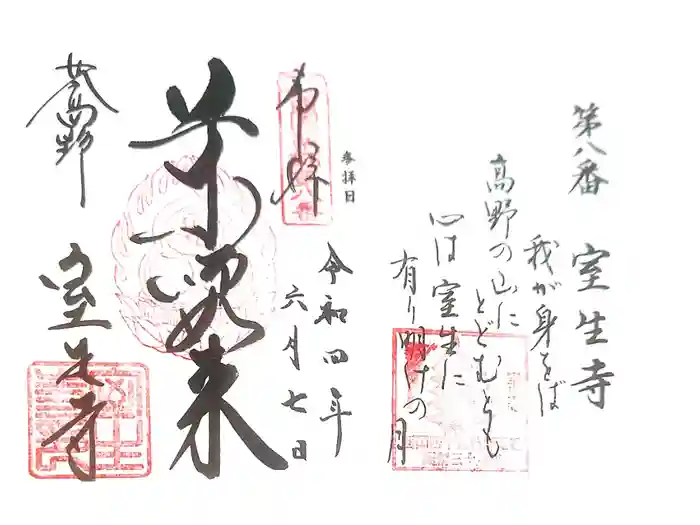 第八番 室生寺
我が身をば
高野の山に
とどむとも
心は室生に
有り明けの月
参拝日
奉拝
令和四年
六月七日
如来
高野
室生寺